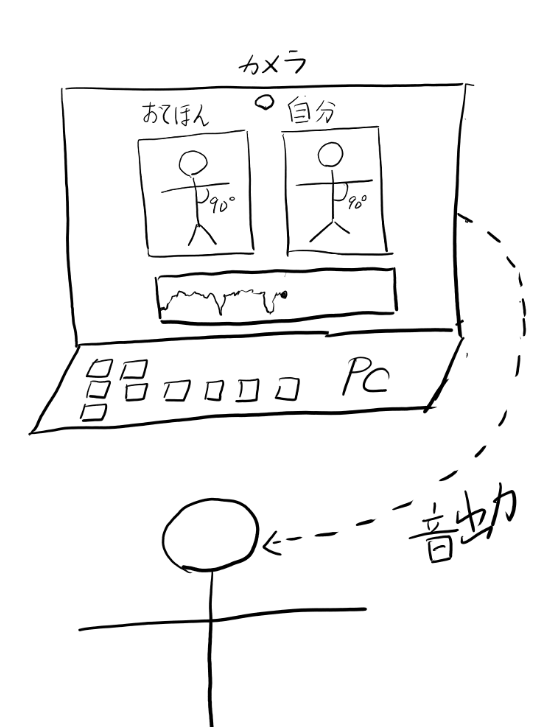 カメラ
おてほん
自分
90°
90°
PC
音出力